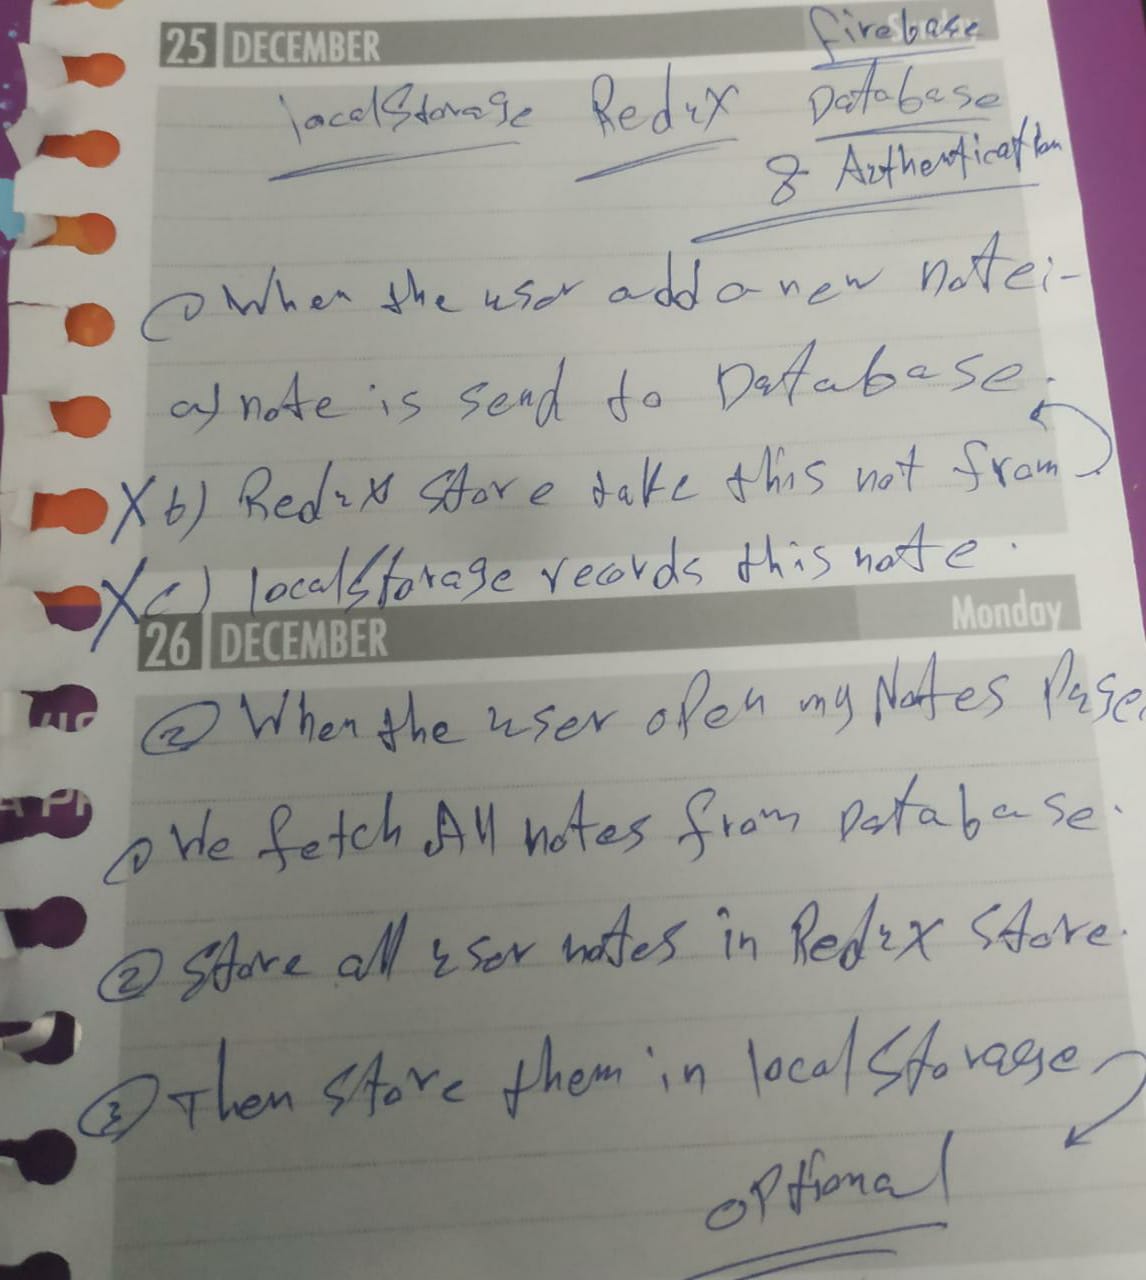 25 DECEMBER
firebase
localStorage Redux Database
& Authentication
① When the user add a new note:-
a) note is send to Database.
X b) Redux store take this not from
X c) localStorage records this note.
26 DECEMBER Monday
② When the user open my Notes Page.
① We fetch All notes from Database.
② Store all user notes in Redux store.
③ Then store them in localStorage
optional